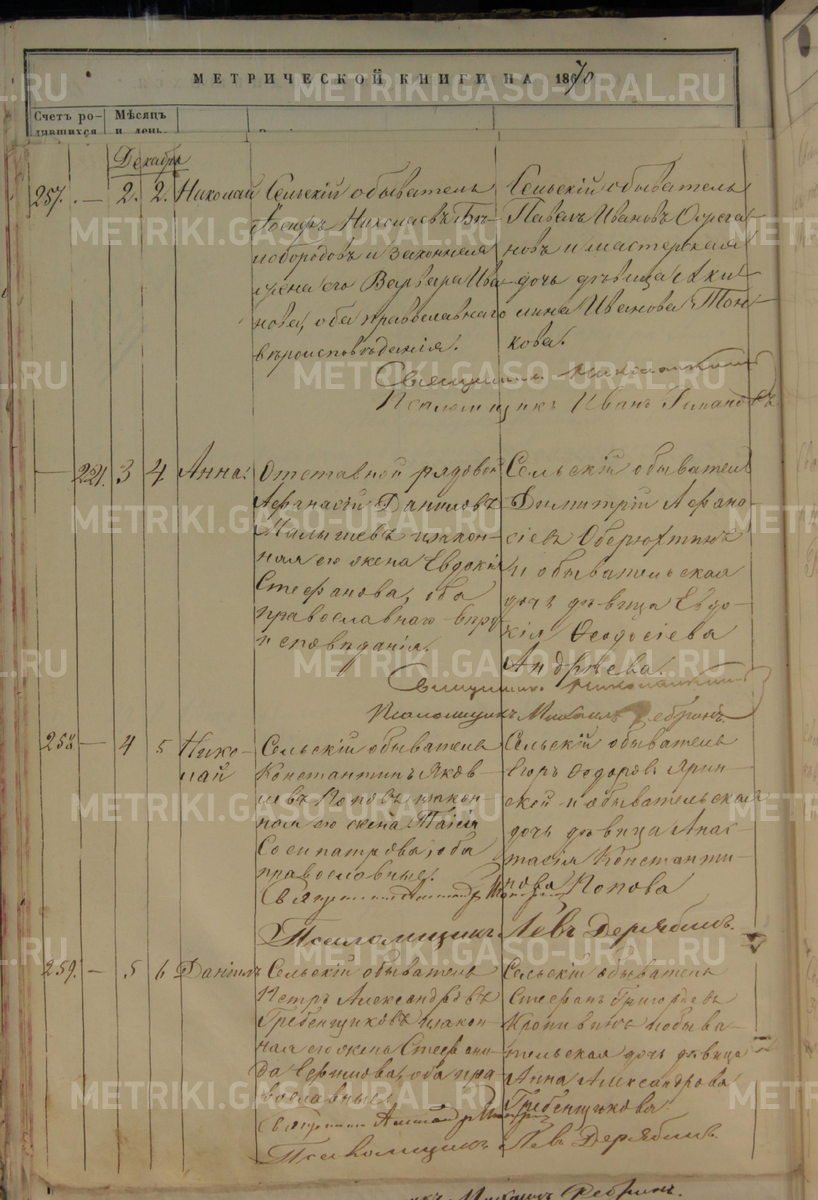 МЕТРИЧЕСКОЙ КНИГИ НА 1870
Счетъ ро- Мѣсяцъ
дившихся и день.
Декабрь
257. — 2. 2. Николай Сельскій обыватель
Николаевъ Бѣ-
лобородовъ и законная
жена его Варвара Ива-
нова, оба православнаго
вѣроисповѣданія.
Сельскій обыватель
Павелъ Ивановъ
новъ и мастерская
дочь дѣвица Аки-
лина Иванова Тон-
кова.
Священникъ
Псаломщикъ Иванъ
— 221. 3 4. Анна. Отставной рядовой
Афанасій Даниловъ
Малышевъ и закон-
ная его жена Евдокія
Стефанова, оба
православнаго вѣро
исповѣданія.
Сельскій обыватель
Димитрій Афана-
сіевъ Оберюхтинъ
и обывательская
дочь дѣвица Евдо-
кія Ѳеодосіева
Андрѣева.
Священникъ
Псаломщикъ Михаилъ Ребринъ.
258 — 4 5 Нико-
лай
Сельскій обыватель
Константинъ Яков-
левъ Поповъ и закон-
ная его жена Таисія
Сосипатрова, оба
православные.
Сельскій обыватель
Егоръ Ѳедоровъ Ярин-
ской и обывательская
дочь дѣвица Анас-
тасія Константи-
нова Попова
Священникъ
Псаломщикъ Левъ Дерябинъ.
259. — 5 6 Даніилъ Сельскій обыватель
Петръ Александровъ
Гребенщиковъ и закон-
ная его жена Стефани-
да Сергіева, оба пра-
вославные.
Сельскій обыватель
Стефанъ Григорьевъ
Кропивинъ и обыва-
тельская дочь дѣвица
Анна Александрова
Гребенщикова.
Священникъ
Псаломщикъ Левъ Дерябинъ.
Михаилъ Ребринъ.
METRIKI.GASO-URAL.RU